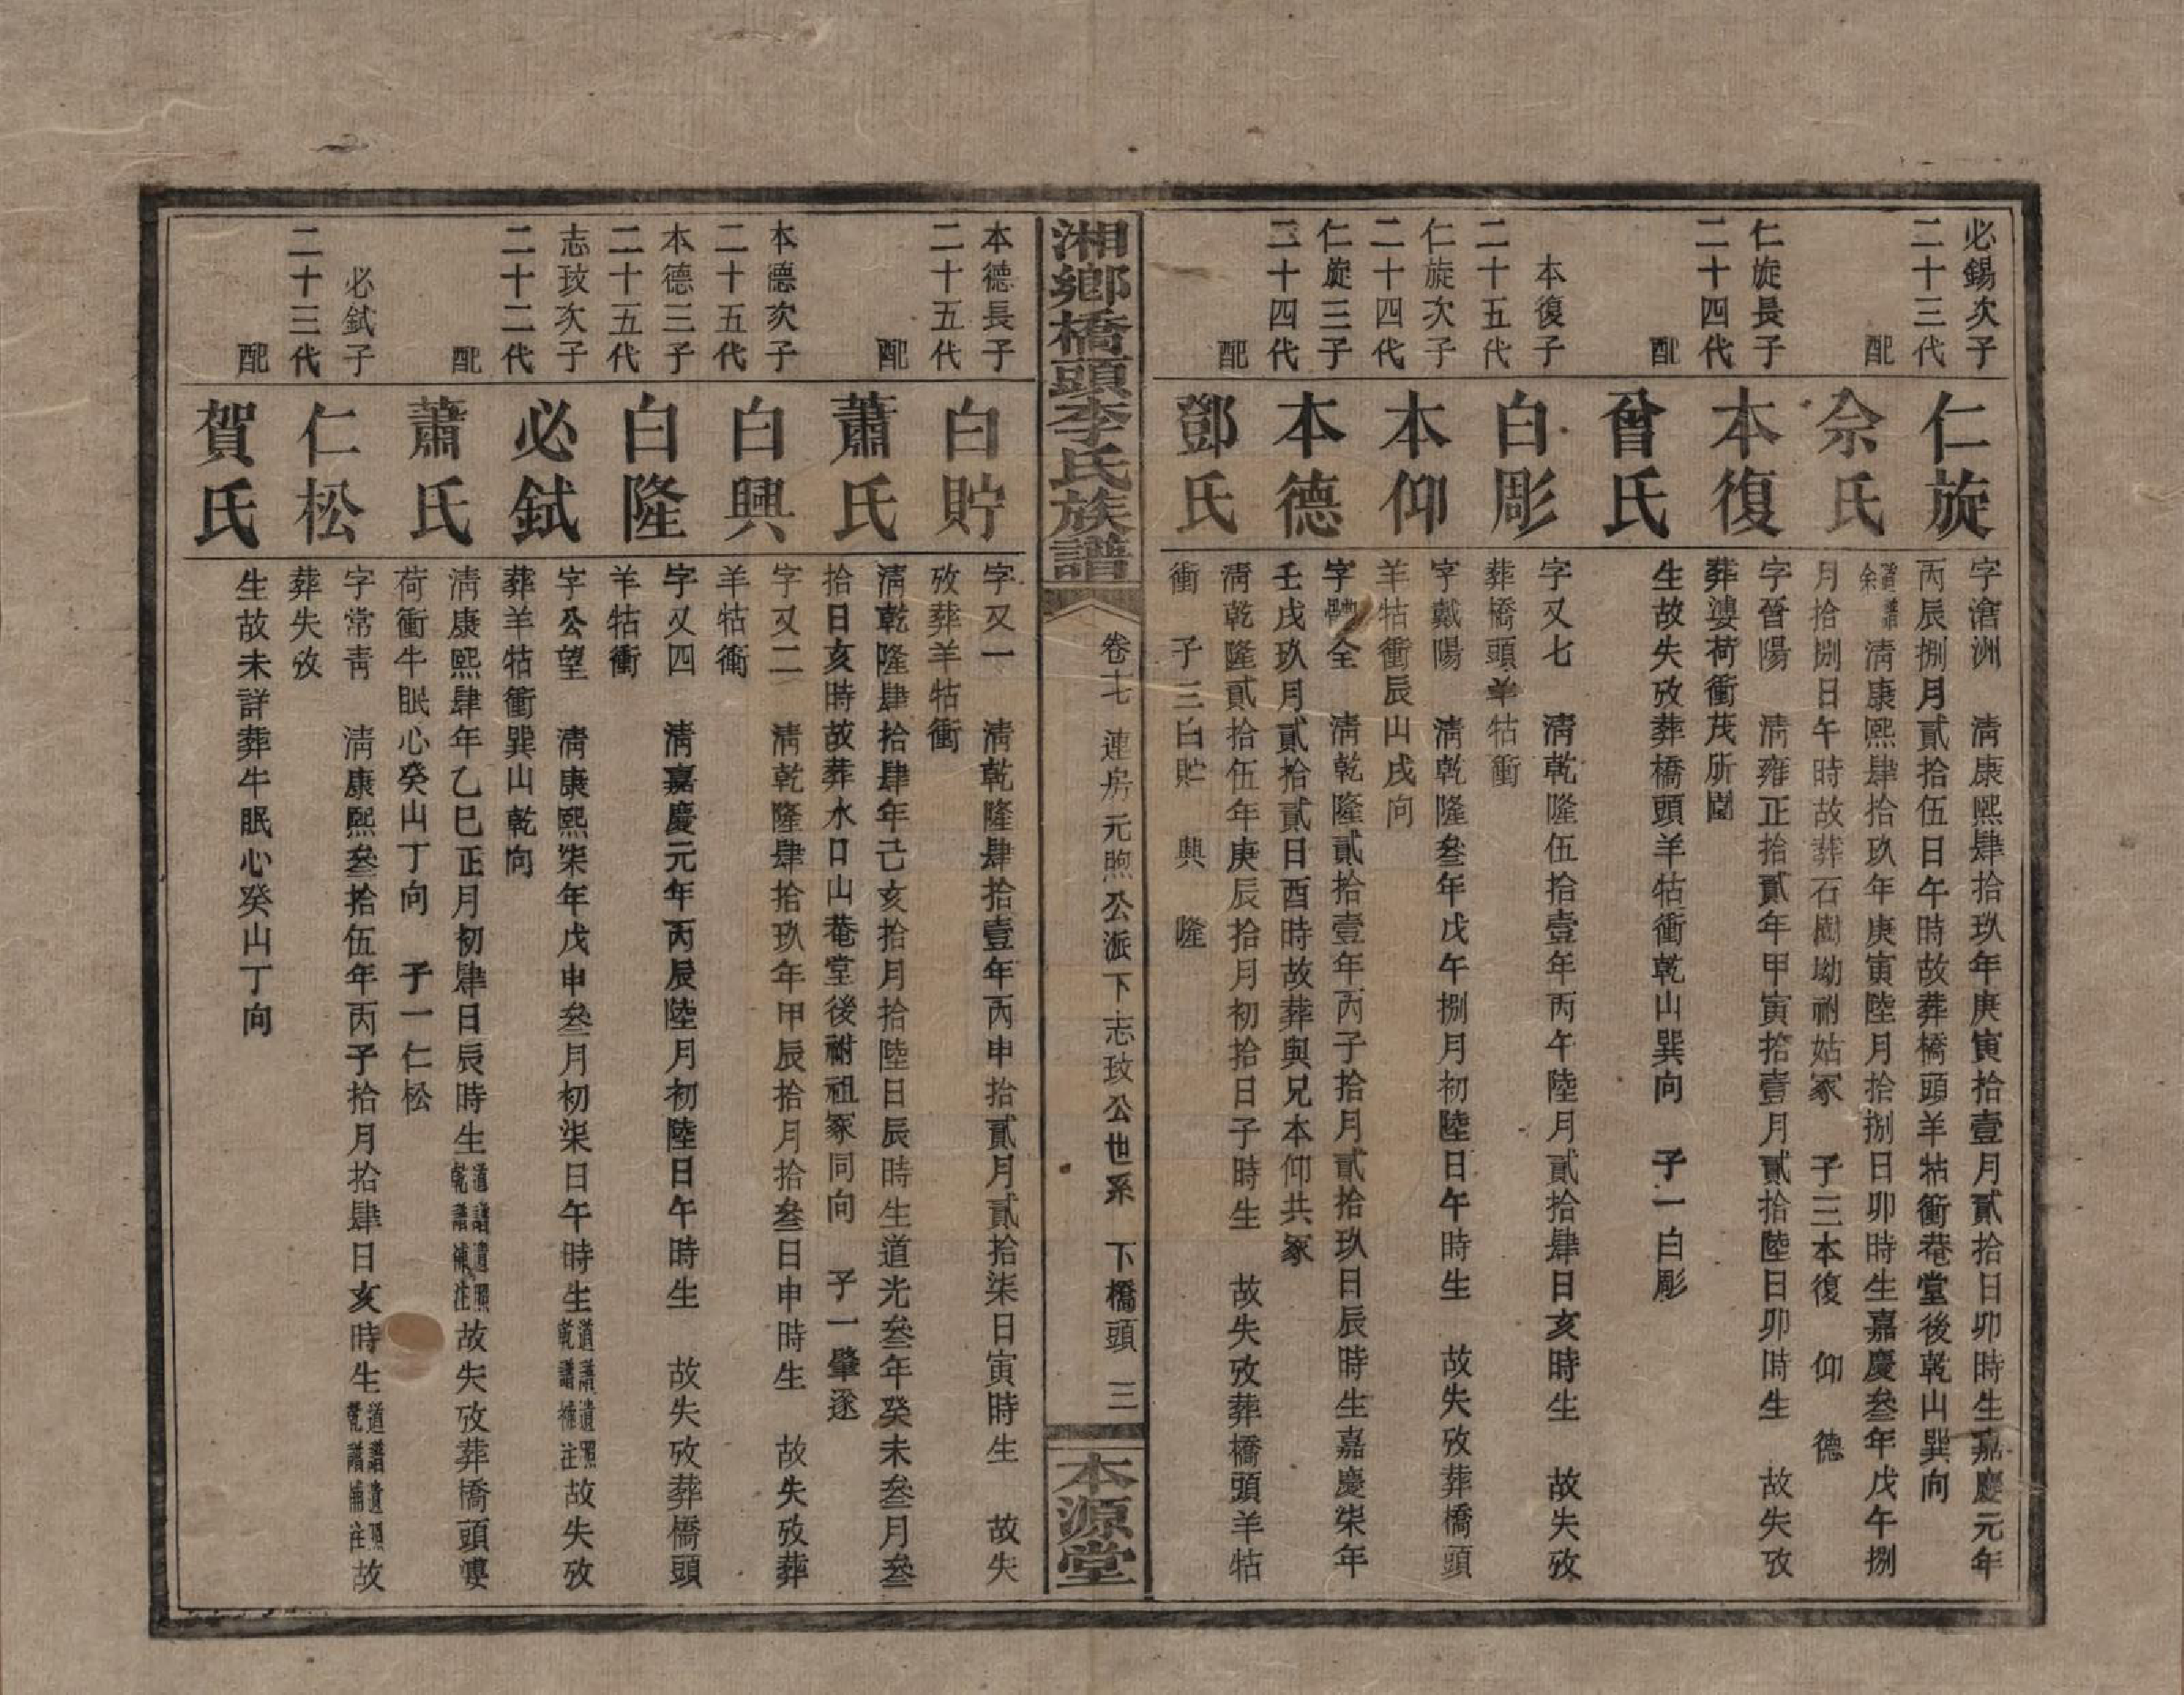 必錫次子
二十三代
仁旋
字㵧洲　清康熙肆拾玖年庚寅拾壹月貳拾日卯時生嘉慶元年
丙辰捌月貳拾伍日午時故葬橋頭羊牯衝菴堂後乾山巽向
配
佘氏
清康熙肆拾玖年庚寅陸月拾捌日卯時生嘉慶叁年戊午捌
月拾捌日午時故葬石樹坳祔姑冢　子三本復　仰　德
仁旋長子
二十四代
本復
字晉陽　清雍正拾貳年甲寅拾壹月貳拾陸日卯時生　故失攷
葬婆荷衝茂所園
配
曾氏
生故失攷葬橋頭羊牯衝乾山巽向　子一白彫
本復子
二十五代
白彫
字又七　清乾隆伍拾壹年丙午陸月貳拾肆日亥時生　故失攷
葬橋頭羊牯衝
仁旋次子
二十四代
本仰
字戴陽　清乾隆叁年戊午捌月初陸日午時生　故失攷葬橋頭
羊牯衝辰山戌向
仁旋三子
二十四代
本德
字　全　清乾隆貳拾壹年丙子拾月貳拾玖日辰時生嘉慶柒年
壬戌玖月貳拾貳日酉時故葬與兄本仰共冢
配
鄧氏
清乾隆貳拾伍年庚辰拾月初拾日子時生　故失攷葬橋頭羊牯
衝　子三白貯　興　隆
湘鄉橋頭李氏族譜
卷十七　連房元煦公派下志玫公世系　下橋頭　三
本源堂
本德長子
二十五代
白貯
字又一　清乾隆肆拾壹年丙申拾貳月貳拾柒日寅時生　故失
攷葬羊牯衝
配
蕭氏
清乾隆肆拾肆年己亥拾月拾陸日辰時生道光叁年癸未叁月叁
拾日亥時故葬水口山菴堂後祔祖冢同向　子一肇遂
本德次子
二十五代
白興
字又二　清乾隆肆拾玖年甲辰拾月拾叁日申時生　故失攷葬
羊牯衝
本德三子
二十五代
白隆
字又四　清嘉慶元年丙辰陸月初陸日午時生　故失攷葬橋頭
羊牯衝
志玫次子
二十二代
必鉽
字公望　清康熙柒年戊申叁月初柒日午時生道譜遺照乾譜補注故失攷
葬羊牯衝巽山乾向
配
蕭氏
清康熙肆年乙巳正月初肆日辰時生道譜遺照乾譜補注故失攷葬橋頭婆
荷衝牛眠心癸山丁向　子一仁松
必鉽子
二十三代
仁松
字常青　清康熙叁拾伍年丙子拾月拾肆日亥時生道譜遺照乾譜補注故
葬失攷
配
賀氏
生故未詳葬牛眠心癸山丁向